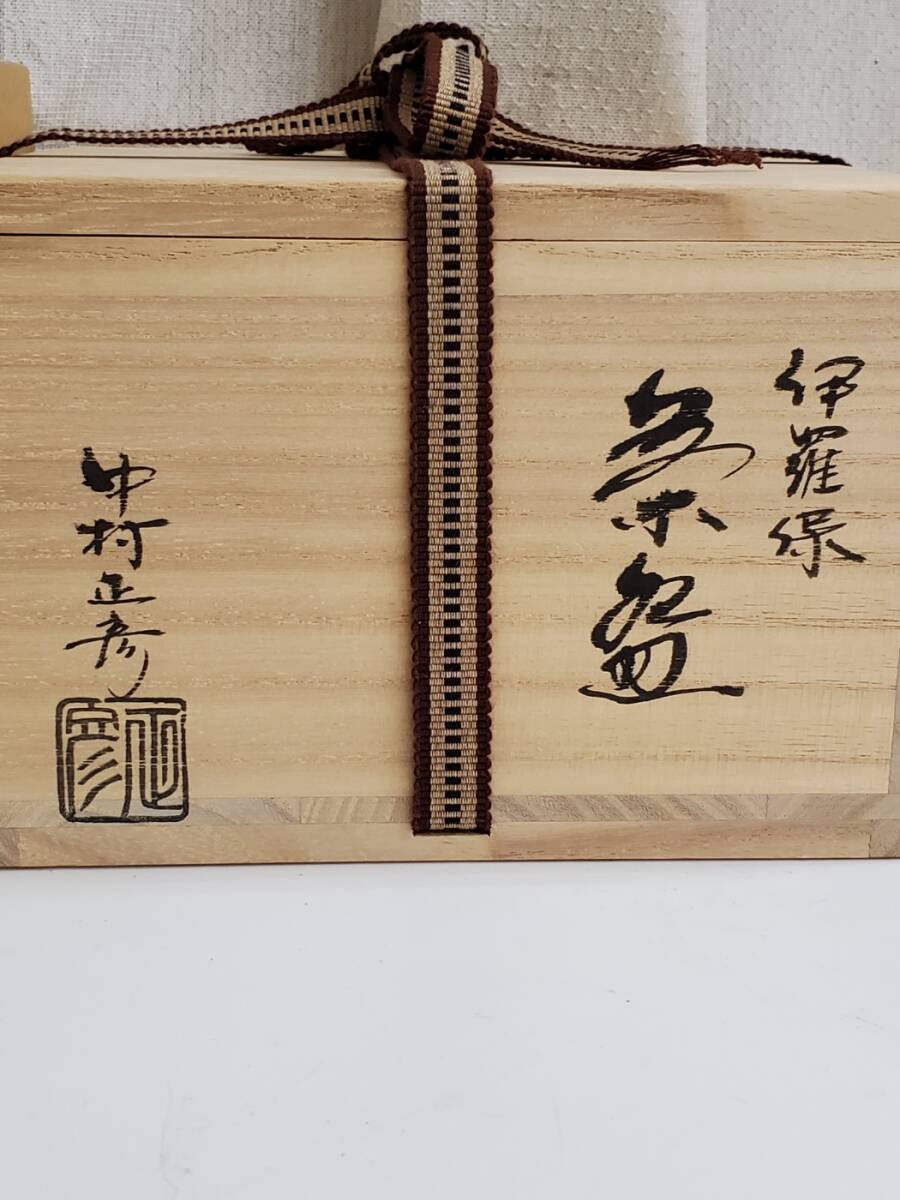 伊羅保
茶盌
中村正彦
正彦